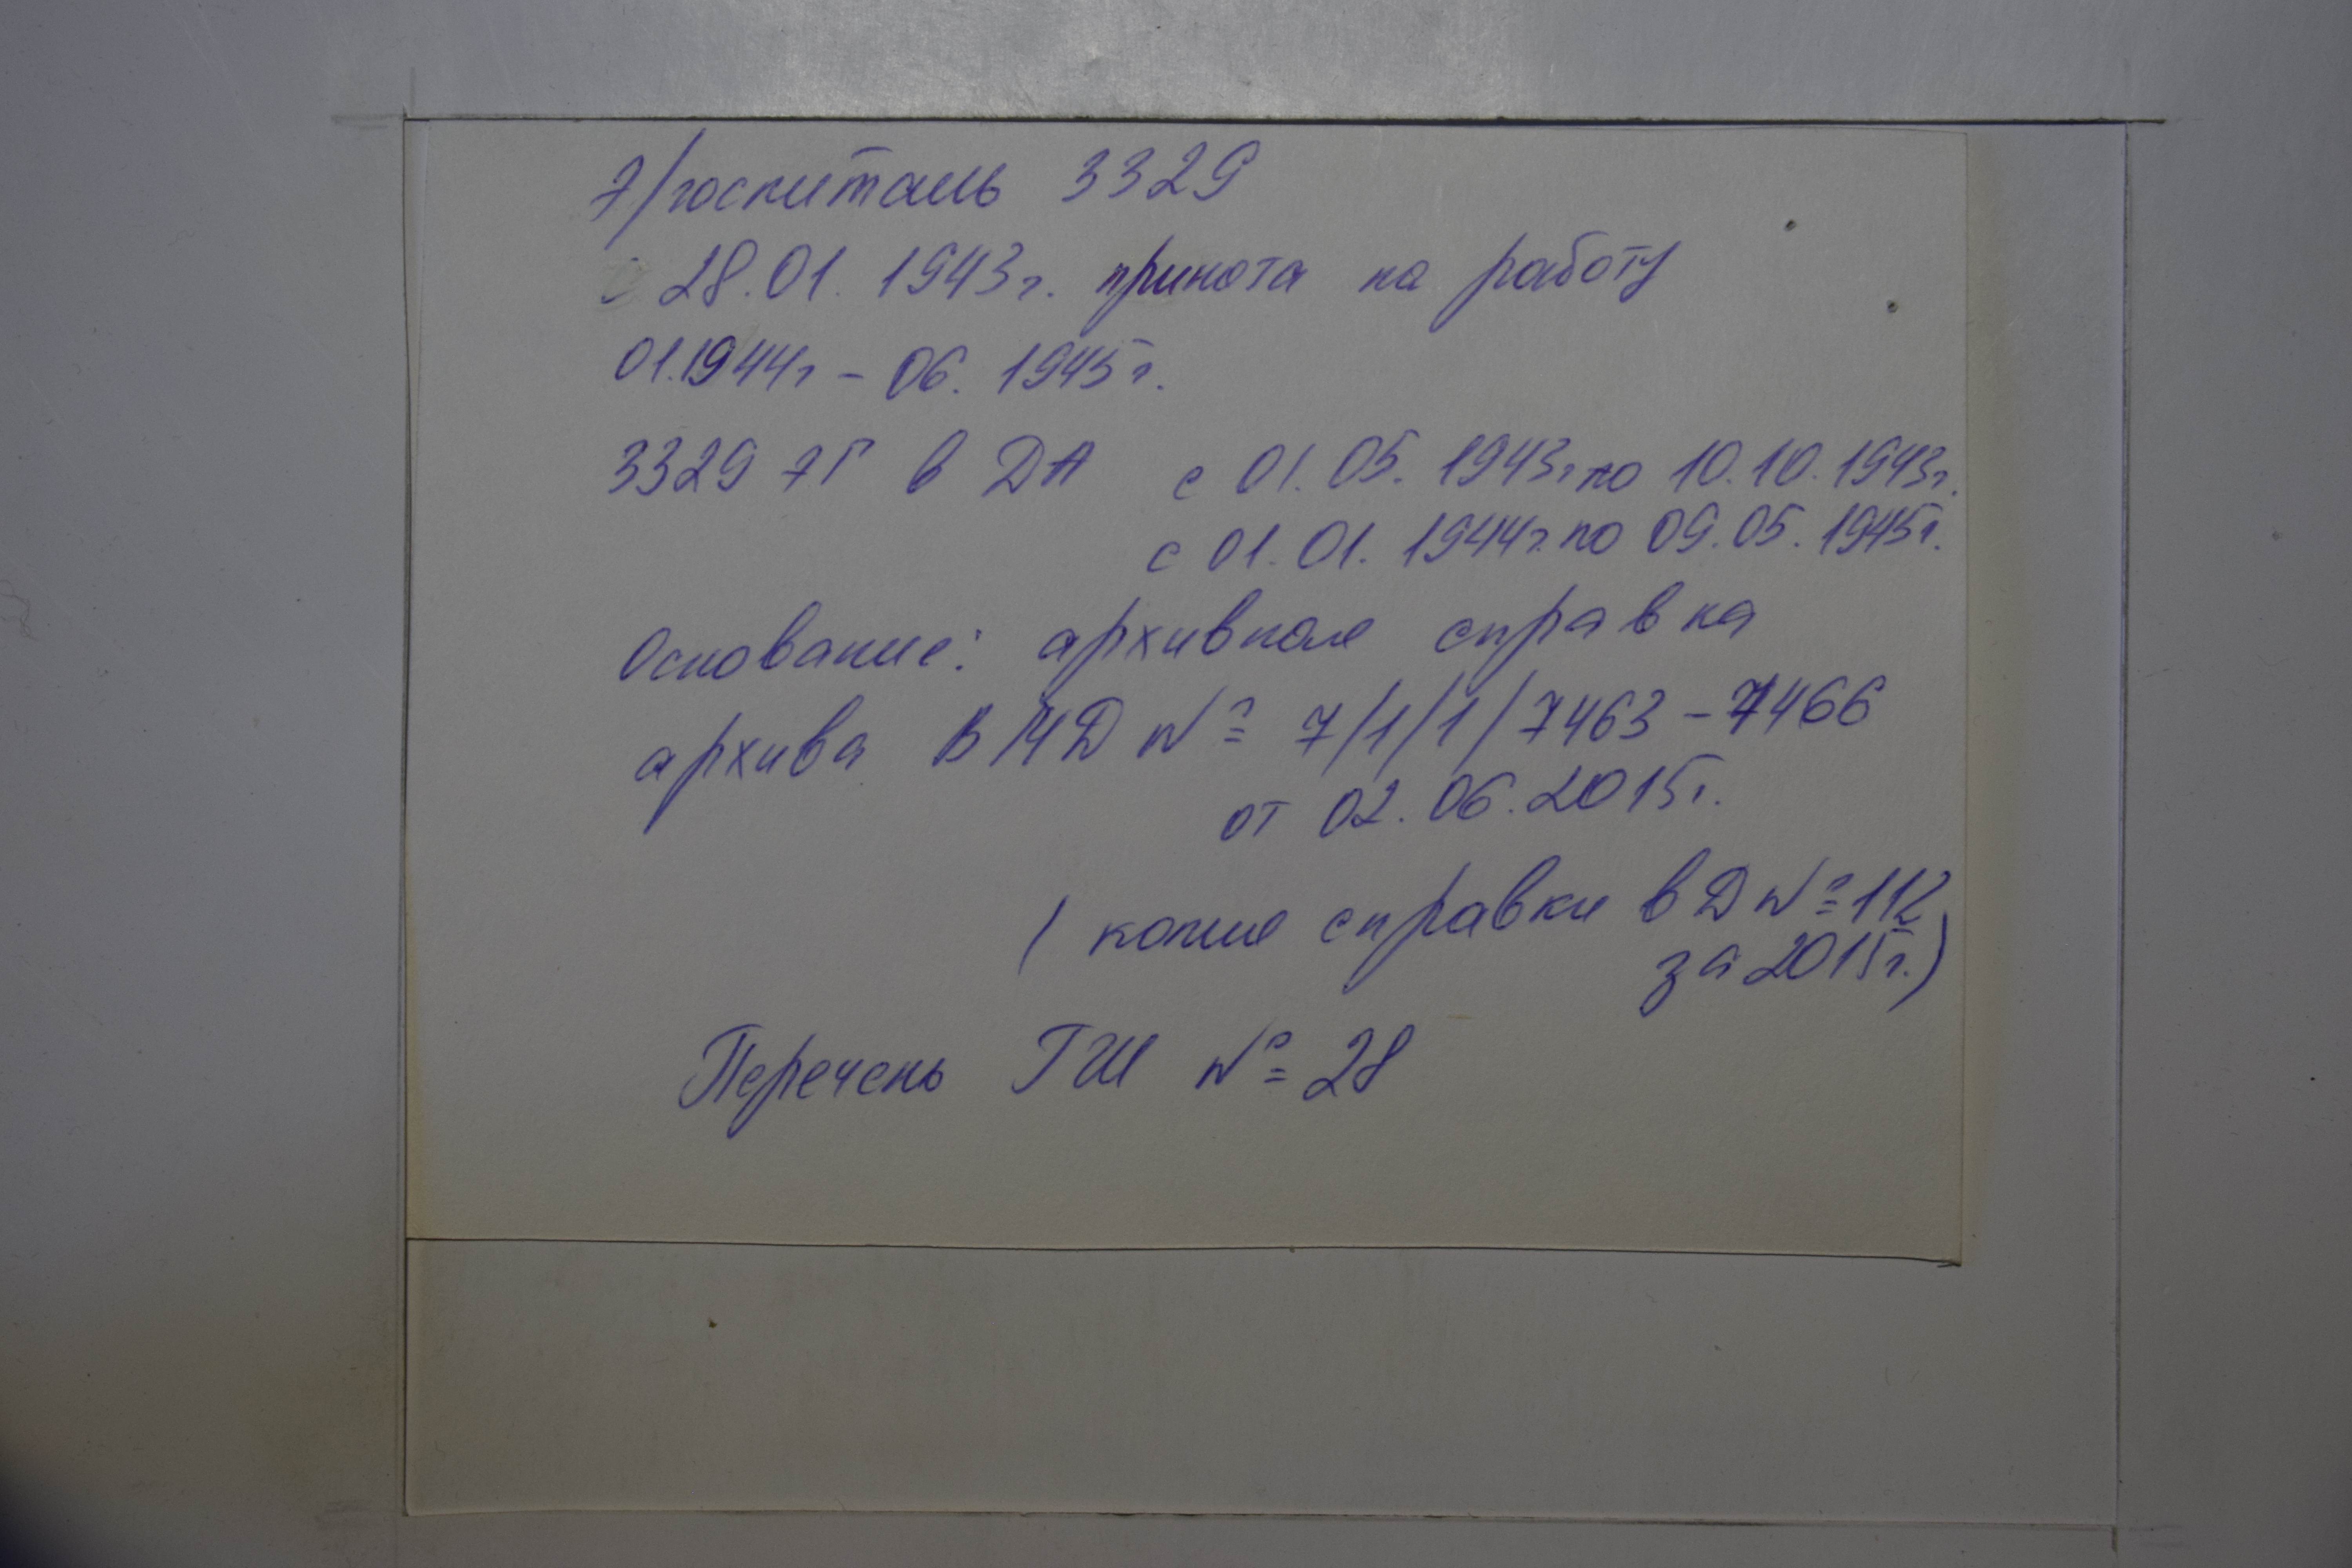 э/госпиталь 3329
с 28.01. 1943г. принята на работу
01.1944г – 06. 1945г.
3329 ЭГ в ДА с 01. 05. 1943г по 10.10.1943г.
с 01. 01. 1944г. по 09.05. 1945г.
Основание: архивная справка
архива ВМД № 7/1/1/7463 – 7466
от 02. 06. 2015г.
( копия справки в Д № 112
за 2015г.)
Перечень ГШ № 28